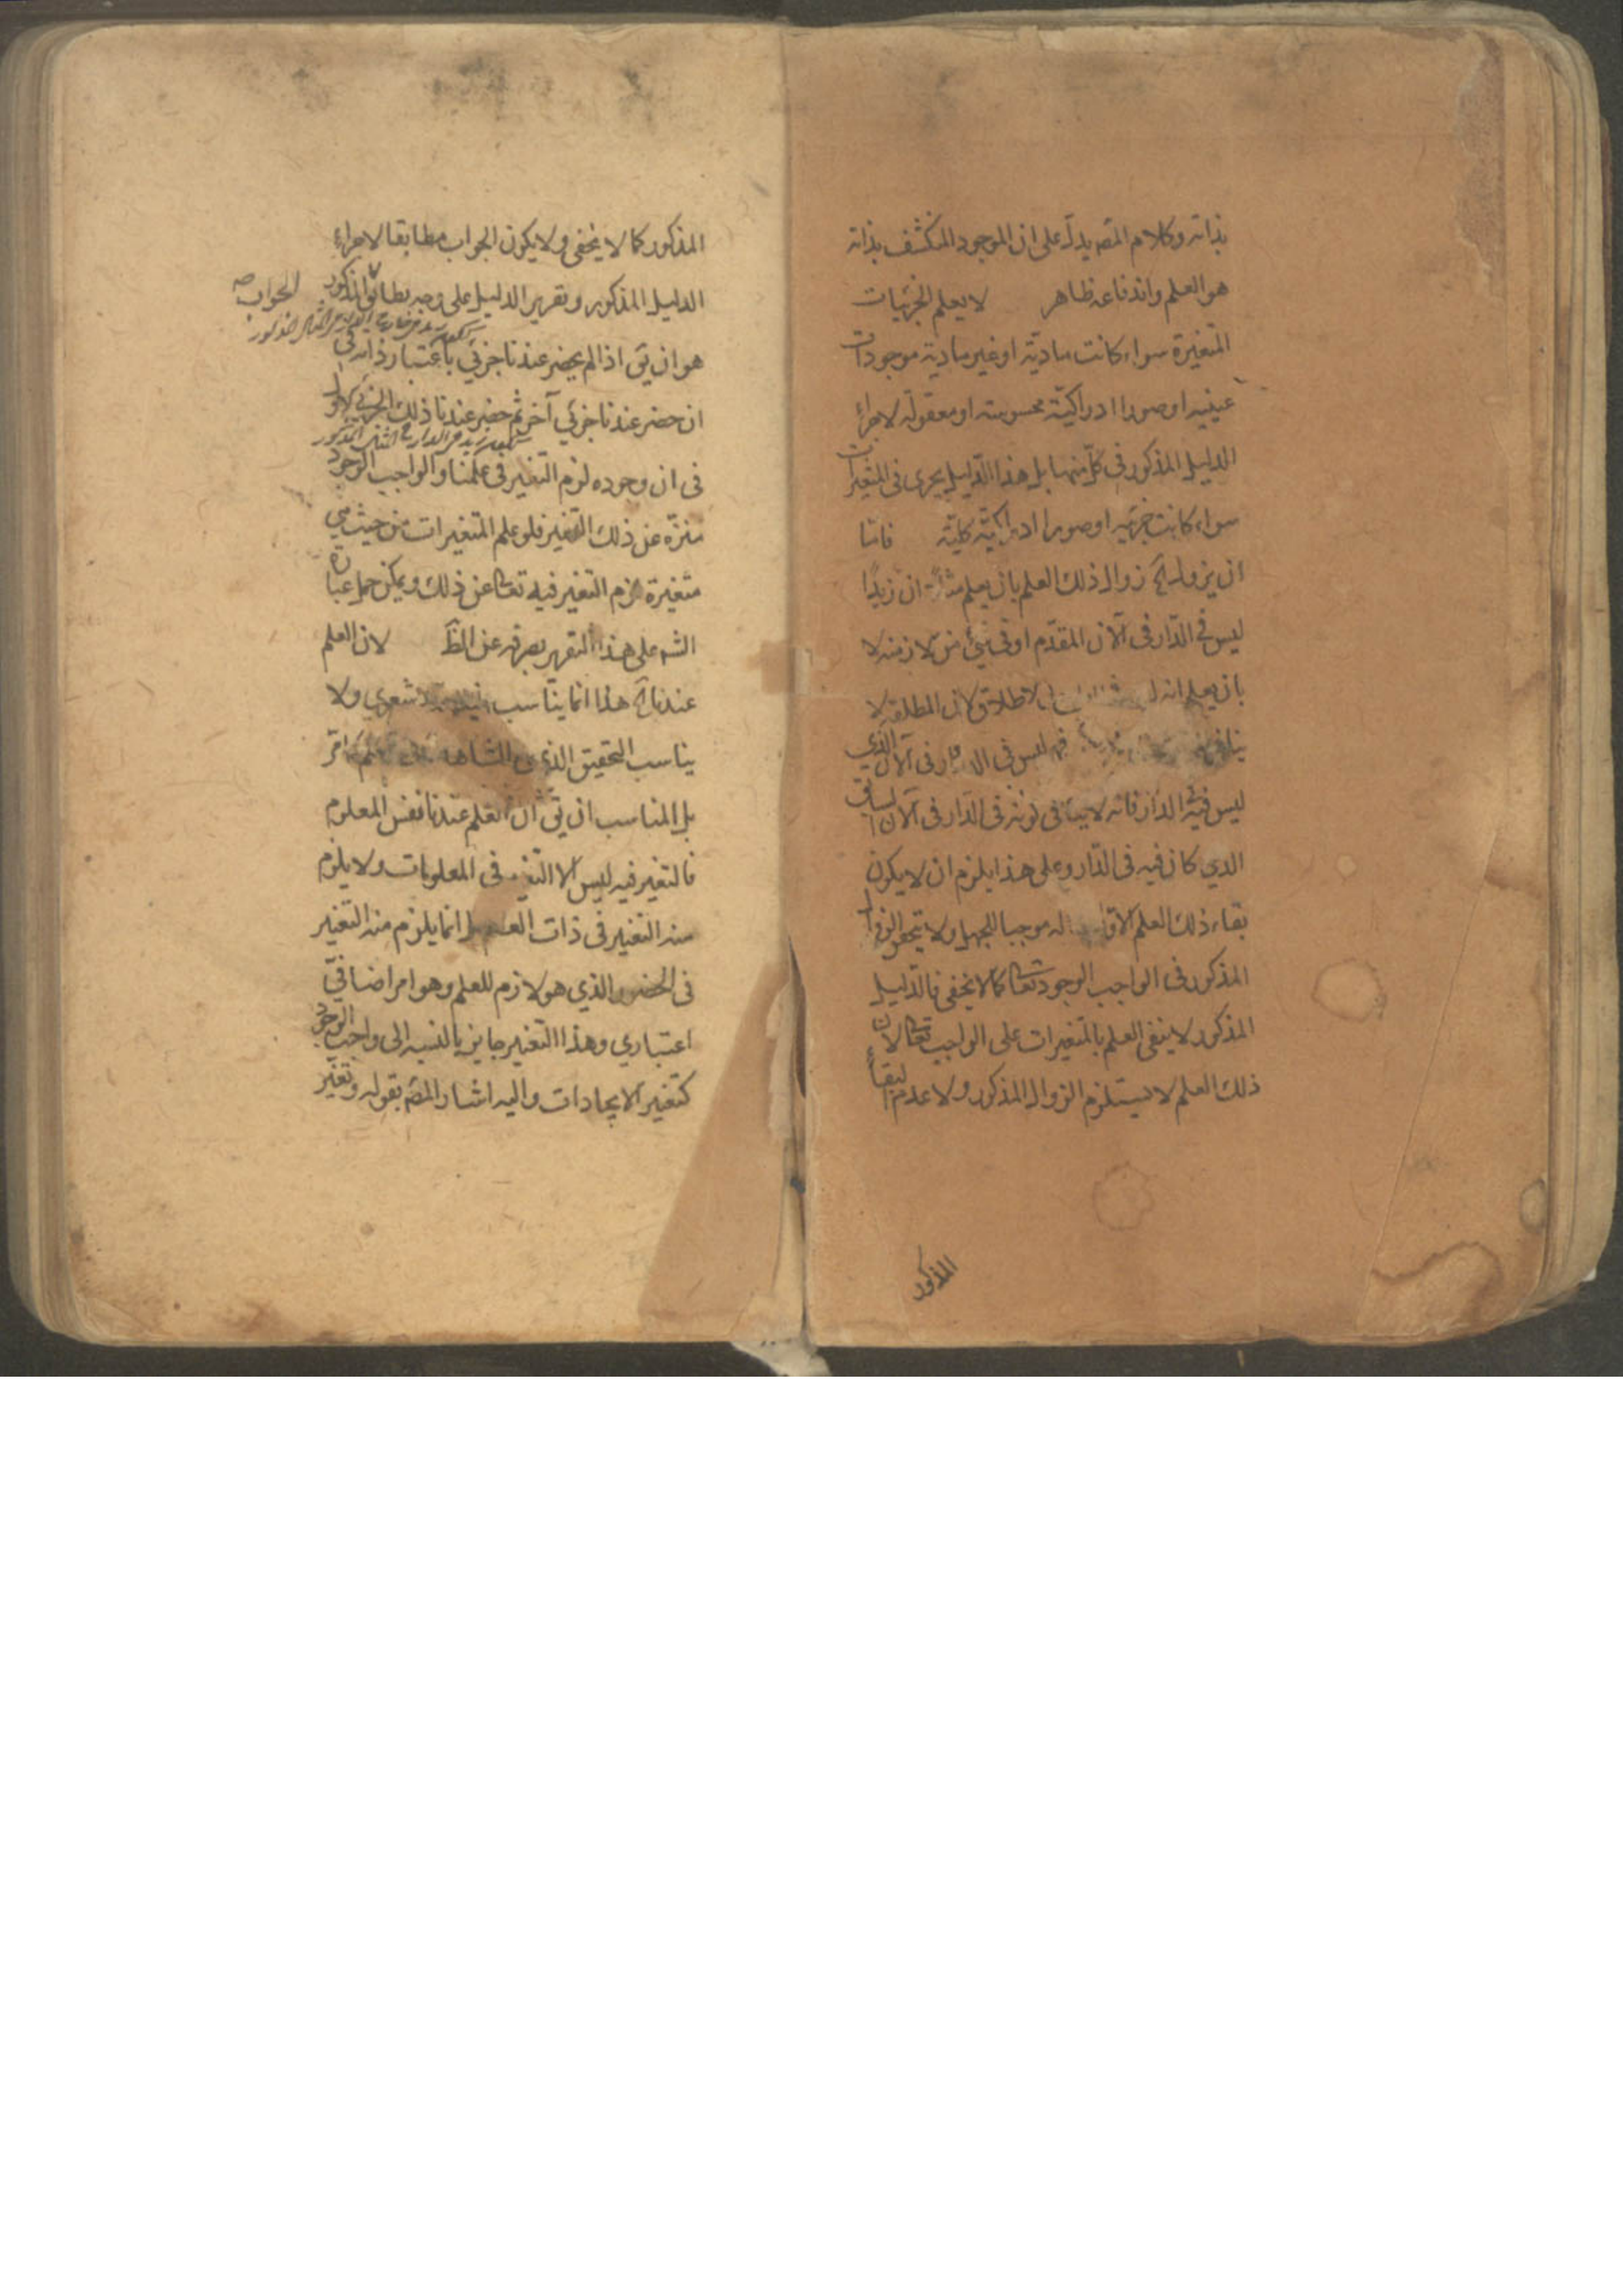 بذاته وكلام المصه يدلّ على ان الموجود المنكشف بذاته
هو العلم واندفاعه ظاهر لا يعلم الجزئيات
المتغيرة سواء كانت مادية او غير مادية موجودات
عينيه او صورا ادراكيّة محسوسة او معقوله لاجراء
الدليل المذكور فى كلّ منهما بل هذا الدّليل يجرى فى المتغيرات
سواء كانت جزئيه او صورا ادراكيّة كليّة فامّا
ان يزول اﻫ زوال ذلك العلم بان يعلم مثلاً ان زيدًا
ليس في الدّار فى الآن المقدّم او فى شيئ من الازمنه لا
بان يعلم انه الاطلاق لان المطلقه لا
ليس فى الدار فى الآن الّذي
ليس فيه الدّار فانه لا ينافى كونه فى الدّار فى الآن السابق
الذي كان فيه فى الدّار وعلى هذا يلزم ان لا يكون
بقاء ذلك العلم الاوّل موجبا للجهل ولا يتحقق الزوال
المذكور فى الواجب الوجود تعالى كما لا يخفى فالدّليل
المذكور لا ينفى العلم بالمتغيرات على الواجب تعالى لان
ذلك العلم لا يستلزم الزوال المذكور ولا عدم البقاء
المذكور
المذكور كما لا يخفى ولا يكون الجواب مطابقا لاجراء
الدليل المذكور وتقرير الدليل على وجه يطابق الجواب صه المذكور
هو ان يقَ اذا لم يحضر عندنا جزئي باعتبار ذاته فى
ان حضر عندنا جزئي آخر ثم حضر عندنا ذلك الجزئي الاول
فى ان وجوده لزم التغير فى علمنا والواجب الوجود
منزّه عن ذلك التغير فلو علم المتغيرات من حيث هي
متغيرة لزم التغير فيه تعالى عن ذلك ويمكن حمل عبارة
الشه على هذا التقرير بصرفه عن الظَ لان العلم
عندنا اﻫ هذا انما يناسب الاشعري ولا
يناسب التحقيق الذي
بل المناسب ان يقَ ان العلم عندنا نفس المعلوم
فالتغير فيه ليس الا التغير فى المعلومات ولا يلزم
منه التغير فى ذات العالم انما يلزم منه التغير
فى الحضور الذي هو لازم للعلم وهو امر اضافيّ
اعتباري وهذا التغير جايز بالنسبه الى واجب الوجود
كتغير الايجادات واليه اشار المصه بقوله وتغيّر